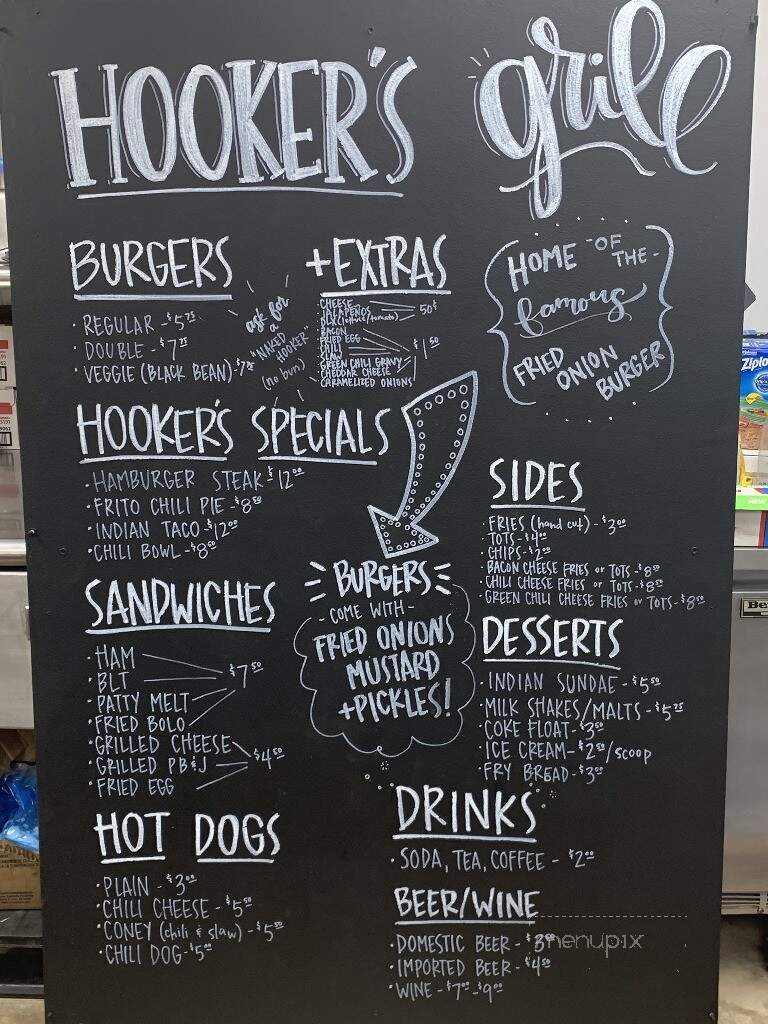 HOOKER'S grill
BURGERS
· REGULAR - $5.75
· DOUBLE - $7.75
· VEGGIE (BLACK BEAN) - $7.75
ask for
a
"NAKED
HOOKER"
(no bun)
+EXTRAS
CHEESE
JALAPEÑOS
DLX (lettuce/tomato)
50¢
BACON
FRIED EGG
CHILI
SLAW
GREEN CHILI GRAVY
CHEDDAR CHEESE
CARAMELIZED ONIONS
$1.50
HOME - OF
THE -
famous
FRIED ONION
BURGER
HOOKER'S SPECIALS
· HAMBURGER STEAK $12.00
· FRITO CHILI PIE - $8.50
· INDIAN TACO - $12.00
· CHILI BOWL - $8.00
BURGERS
- COME WITH -
FRIED ONIONS
MUSTARD
+PICKLES!
SIDES
· FRIES (hand cut) - $3.00
· TOTS - $4.00
· CHIPS - $2.00
· BACON CHEESE FRIES or TOTS - $8.50
· CHILI CHEESE FRIES or TOTS - $8.50
· GREEN CHILI CHEESE FRIES or TOTS - $8.50
SANDWICHES
· HAM
· BLT
· PATTY MELT
· FRIED BOLO
$7.50
· GRILLED CHEESE
· GRILLED PB&J
· FRIED EGG
$4.50
DESSERTS
· INDIAN SUNDAE - $5.50
· MILK SHAKES/MALTS - $5.25
· COKE FLOAT - $3.50
· ICE CREAM - $2.50/SCOOP
· FRY BREAD - $3.00
HOT DOGS
· PLAIN - $3.00
· CHILI CHEESE - $5.50
· CONEY (chili & slaw) - $5.50
· CHILI DOG - $5.00
DRINKS
· SODA, TEA, COFFEE - $2.00
BEER/WINE
· DOMESTIC BEER - $3.50
· IMPORTED BEER - $4.50
· WINE - $7.00 - $9.00
menupix
Ziplo
NEW
Be